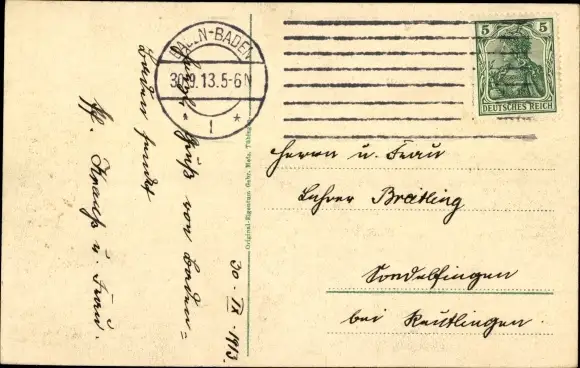 BADEN-BADEN
30.9.13.5-6N
1 *
5 5
DEUTSCHES REICH
30. IX. 1913.
Gruß von Baden-
Baden sendet
Kraus u. Frau.
Original-Eigentum Gebr. Metz, Tübingen
Herrn u. Frau
Lehrer Breitling
Sondelfingen
bei Reutlingen.